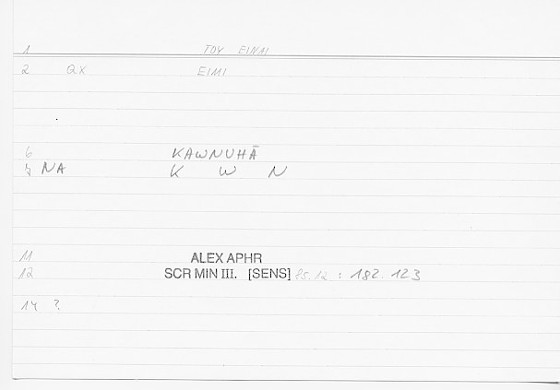 1 TOY EINAI
2 QX EIMI
6 KAWNUHĀ
7 NA K W N
11 ALEX APHR
12 SCR MIN III. [SENS] 85.12 : 182.123
14 ?